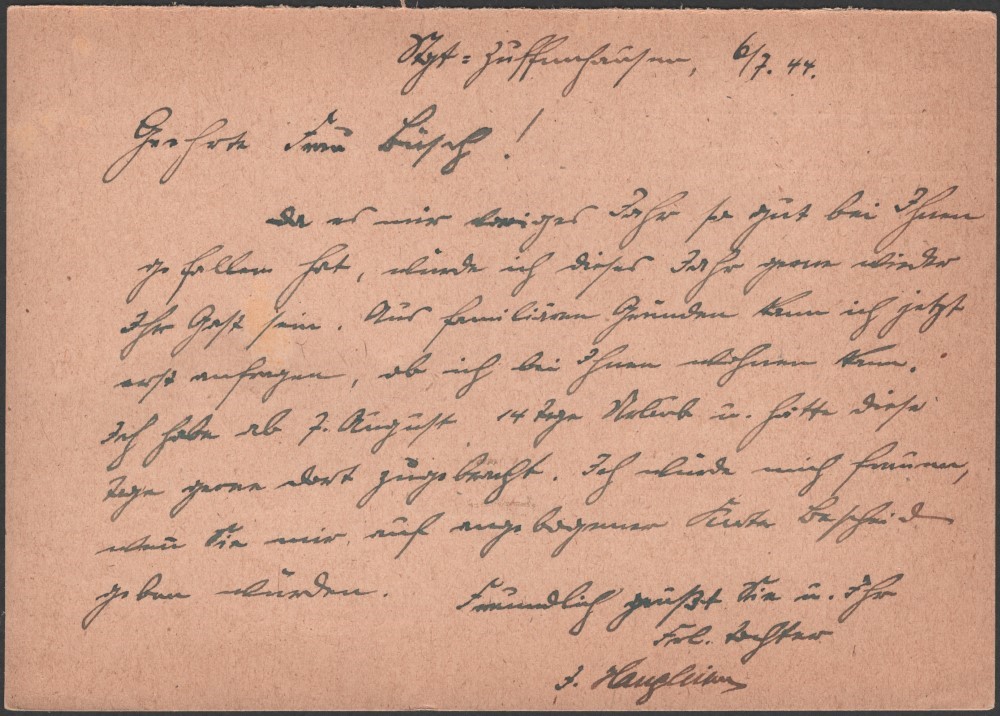 Stgt-Zuffenhausen, 6/7. 44.
Geehrte Frau Büsch!
Da es mir voriges Jahr so gut bei Ihnen
gefallen hat, würde ich dieses Jahr gerne wieder
Ihr Gast sein. Aus familiären Gründen kann ich jetzt
erst anfragen, ob ich bei Ihnen wohnen kann.
Ich habe ab 7. August 14 Tage Urlaub u. hätte diese
Tage gerne dort zugebracht. Ich würde mich freuen,
wenn Sie mir auf angebogener Karte Bescheid
geben würden.
Freundlich grüßt Sie u. Ihr
Frl. Tochter
J.